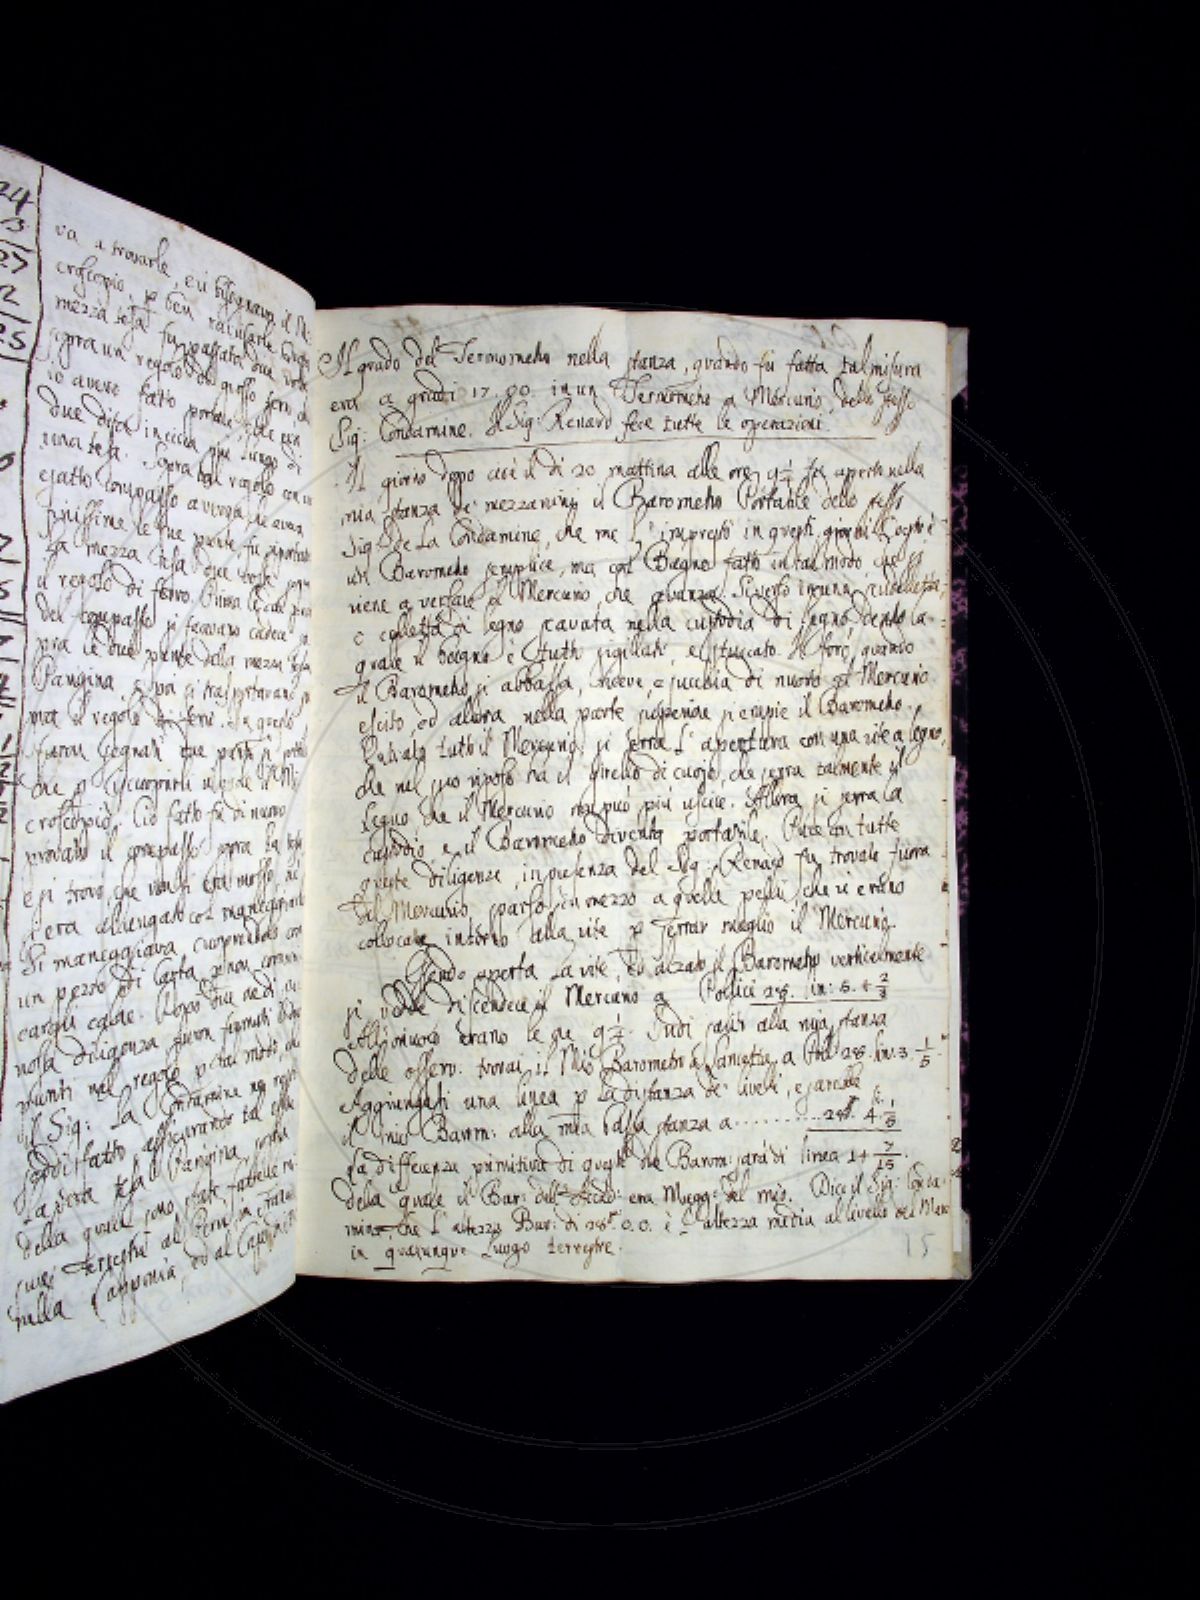 24
13
27
12
25
va a trovarle, e vi bisognava il Mi-
croscopio, p ben ravisarle. Questa
mezza tesa fu passata due volte
sopra un regolo di grosso ferro, che
io avevo fatto portare
due dita in circa più lungo di
una tesa. Sopra tal regolo con un
esatto compasso a verga, che aveva
finissime le due punte, fu riportata
la mezza tesa due volte sopra
il regolo di ferro. Prima le due punte
del compasso si facevano cadere so-
pra le due punte della mezza tesa
Pangina, e poi si trasportavano so-
pra il regolo di ferro. In questo
furon segnati due punti sì sottili
che p iscuoprirli vi volle il Mi-
croscopio. Ciò fatto fu di nuovo
provato il compasso sopra la tesa
e si trovò, che non si era mosso, nè
s'era allungato col maneggiarlo
Si maneggiava cuoprendolo con
un pezzo di carta p non comuni-
cargli calore. Dopo
nostra diligenza furon fermati i due
punti nel regolo p tal modo, che
il Sig: La Condamine ne restò
soddisfatto, assicurando tal essere
la vera tesa Pangina, sopra
della quale sono state fatte le mi-
sure terrestri al Perù, in Francia
nella Lapponia, ed al Capo
Il grado del Termometro nella stanza, quando fu fatta tal misura
era a gradi 17. 90. in un Termometro a Mercurio, dello stesso
Sig: Condamine. Il Sig: Renard fece tutte le operazioni.
Il giorno dopo cioè il dì 20 mattina alle ore 9 1/4 fu aperto nella
mia stanza de' mezzanini il Barometro Portatile dello stesso
Sig: de La Condamine, che me l'imprestò in questi giorni. Questo è
un Barometro semplice, ma col Bagno fatto in tal modo che
viene a versare il Mercurio, che avanza. Si versò in una
o colletta di legno scavata nella custodia di legno dentro la-
quale il bagno è tutto sigillato, e stuccato. Il foro, quando
il Barometro si abbassa, riceve, e succhia di nuovo il Mercurio
escito, ed allora nella parte superiore si empie il Barometro.
Entrato tutto il Mercurio, si serra l'apertura con una vite a legno,
che nel suo riposo ha il girello di cuojo, che serra talmente il
Legno, che il Mercurio non può più uscire. Allora si serra la
custodia, e il Barometro diventa portatile. Pure con tutte
queste diligenze, in presenza del Sig: Renard fu trovato fuora
del Mercurio sparso in mezzo a quelle pelli, che vi erano
collocate intorno alla vite p serrar meglio il Mercurio.
Essendo aperta la vite, ed alzato il Barometro verticalmente
si vedde discendere il Mercurio a Pollici 28. lin: 5. + 2/3
All'oriuolo erano le ore 9 1/4. Indi salii alla mia stanza
delle osserv. trovai il Mio Barometro a Canietta a Poll: 28. lin: 3. 1/5.
Aggiungasi una linea p la distanza de' livelli, e sarebbe
il mio Barom: alla mia bassa stanza a.......... 28P. 4. li. 1/5
La differenza primitiva di questi due Barom: sarà di linea 1 + 7/15.
della quale il Bar: dell'Accad: era Magg: del mio. Dice il Sig: Conda-
mine, che l'altezza Bar: di 28P. 0. 0. è l'altezza media al livello del Mare
in qualunque Luogo terrestre.
15